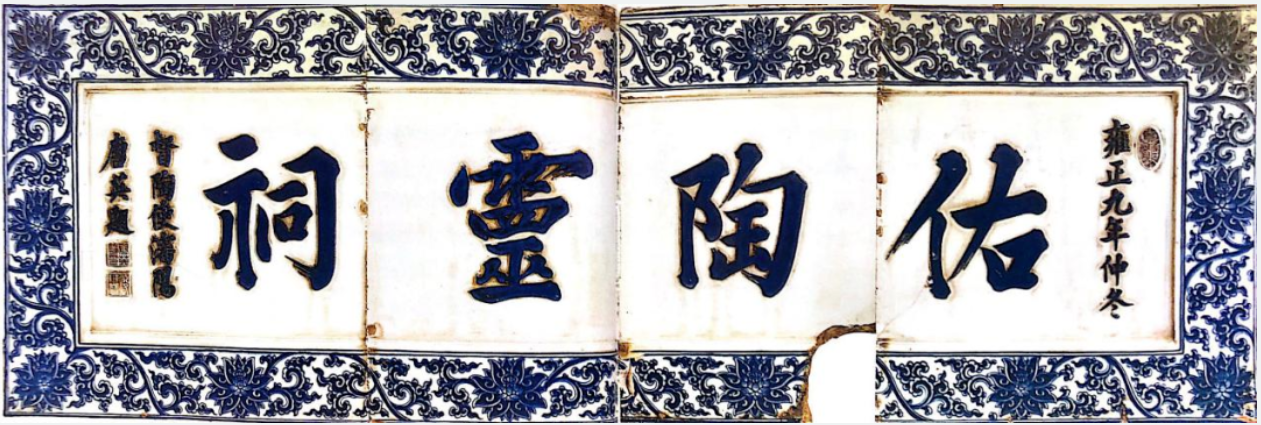 雍正九年仲冬
佑陶靈祠
督陶使瀋陽
唐英題